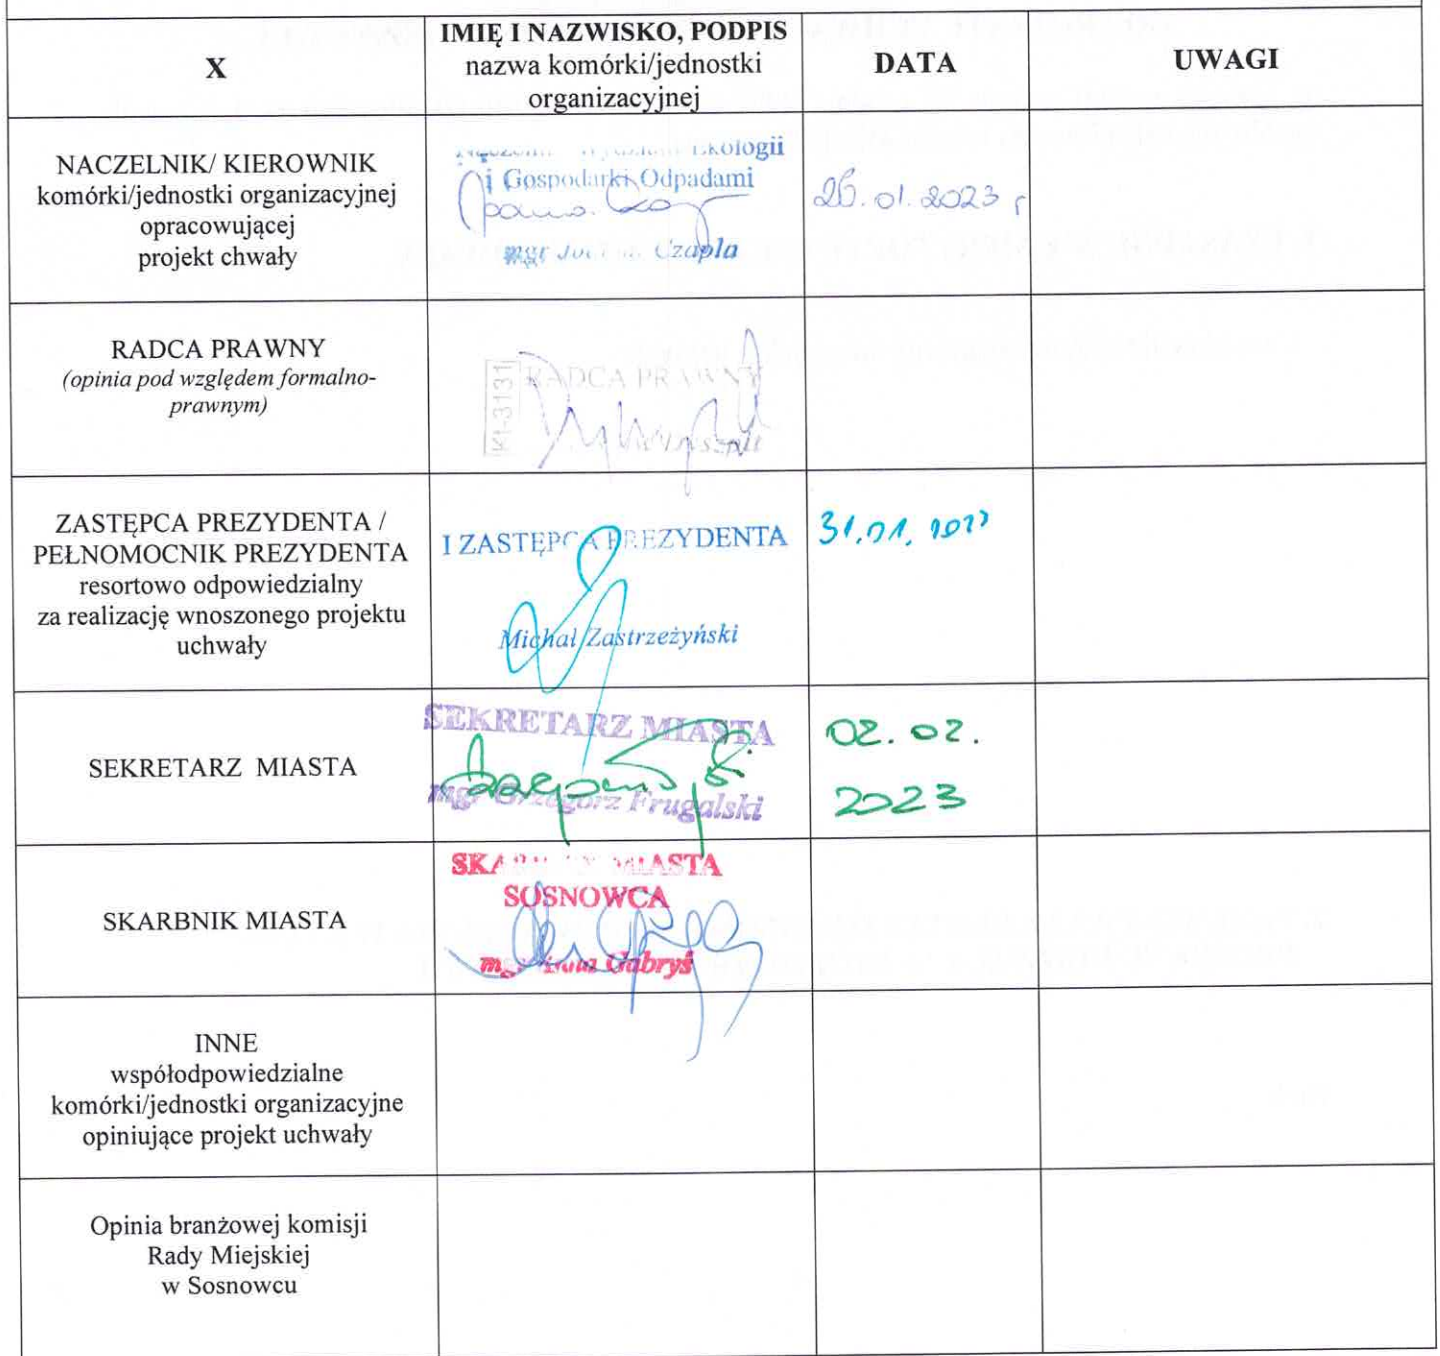 X
IMIĘ I NAZWISKO, PODPIS
nazwa komórki/jednostki
organizacyjnej
DATA
UWAGI
NACZELNIK/ KIEROWNIK
komórki/jednostki organizacyjnej
opracowującej
projekt chwały
Ekologii
i Gospodarki Odpadami
mgr Czapla
26.01.2023 r
RADCA PRAWNY
(opinia pod względem formalno-
prawnym)
KI-3131
RADCA PRAWNY
ZASTĘPCA PREZYDENTA /
PEŁNOMOCNIK PREZYDENTA
resortowo odpowiedzialny
za realizację wnoszonego projektu
uchwały
I ZASTĘPCA PREZYDENTA
Michał Zastrzeżyński
31.01.
SEKRETARZ MIASTA
SEKRETARZ MIASTA
mgr Grzegorz Frugalski
02.02.
2023
SKARBNIK MIASTA
SKARBNIK MIASTA
SOSNOWCA
mgr Gabryś
INNE
współodpowiedzialne
komórki/jednostki organizacyjne
opiniujące projekt uchwały
Opinia branżowej komisji
Rady Miejskiej
w Sosnowcu